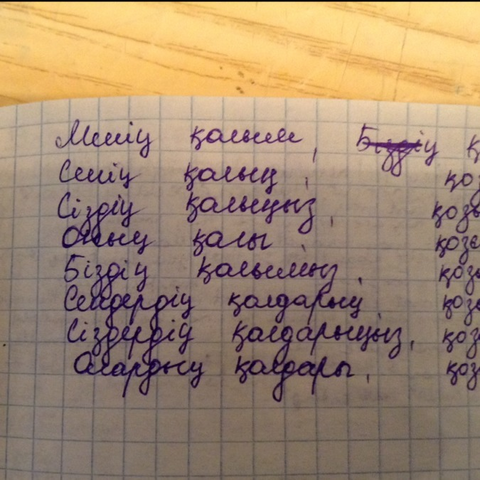 Менің қалым, Біздің
Сенің қалың, қоз
Сіздің қалыңыз, қозы
Оның қалы
Біздің қалымыз, қозы
Сендердің қалдарың
Сіздердің қалдарыңыз, қоз
Олардың қалдары, қоз